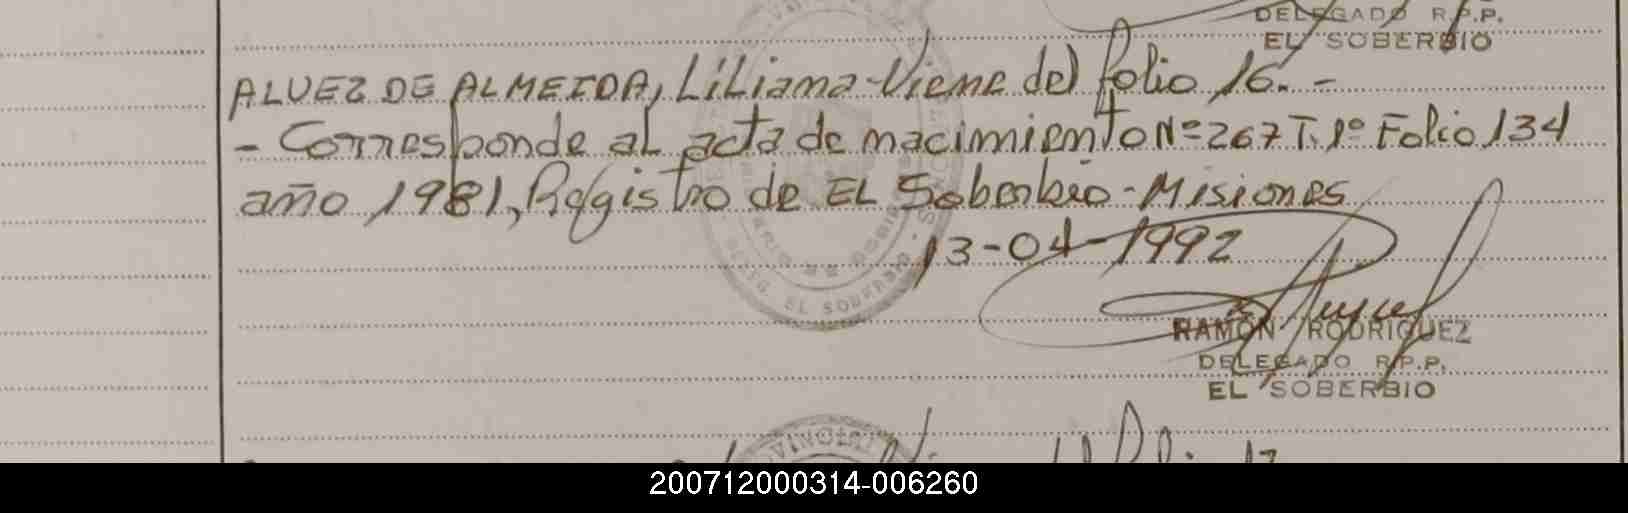 DELEGADO R.P.P.
EL SOBERBIO
ALVEZ DE ALMEIDA, Liliana - Viene del folio 16. -
- Corresponde al acta de nacimiento Nº 267 T. 1º Folio 134
año 1981, Registro de EL Soberbio - Misiones
13-04-1992
RAMÓN RODRIGUEZ
DELEGADO R.P.P.
EL SOBERBIO
200712000314-006260